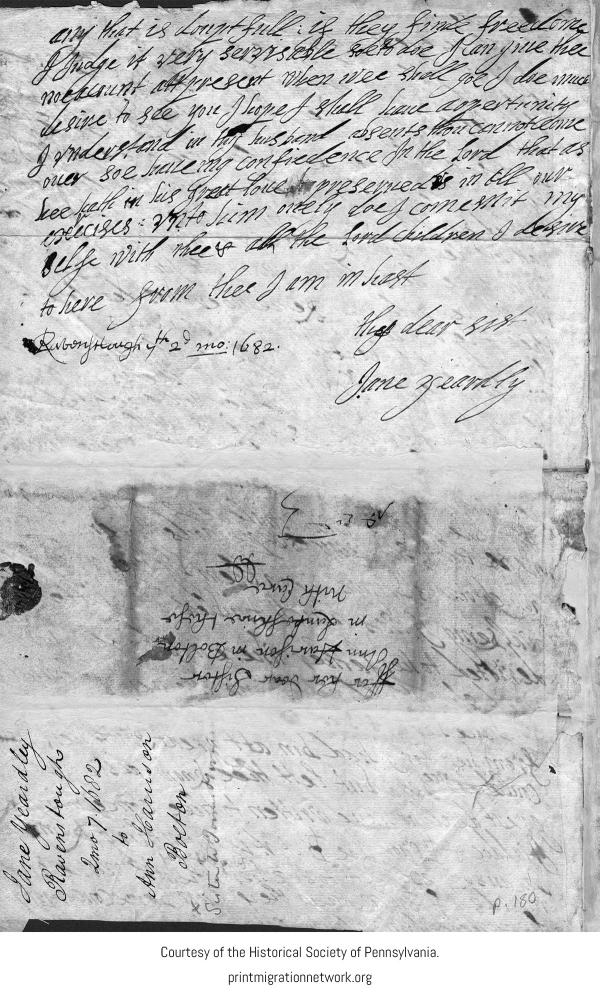 any that is doughtfull: is they finde freedome
I Judge it very servisable soe to doe I can give thee
noe account att present when wee shall goe I doe much
desire to see you I hope I shall have oppertunity
I understand in thy husband absents thou cannot come
over soe haveing confiedence In the Lord that as
hee hath in his Great Love preserved us in all our
exercises: unto him onely doe I comemit my
selfe with thee & all the Lord children I desire
to here from thee I am in hast
thy dear sist
Ravensthough 2d mo: 1682.
Jane yeardly
ffor her dear Sister
Ann Harrison in Bolton
in Lankeshaire these
with Care
Jane Yeardley
Ravenstough
2mo 7 1682
to
Ann Harrison
Bolton
Sister to
p. 180
Courtesy of the Historical Society of Pennsylvania.
printmigrationnetwork.org